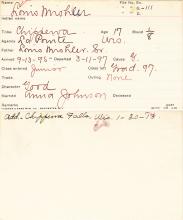 Name File No.
Louis Mishler
INDIAN NAME
Tribe Chippewa Age 17 Blood 1/8
Agency La Pointe Wis.
Father Louis Mishler. Sr.
Arrived 9-13-95 Departed 3-11-97 Cause
Class entered Junior Class left Grad. 97.
Trade Outing None
Character Good
Married Anna Johnson Deceased
Remarks
Add. Chippewa Falls, Wis. 1-20-